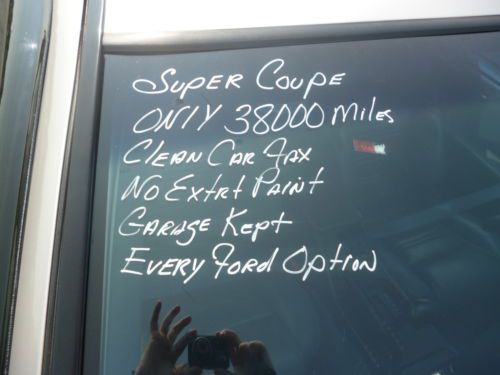 Super Coupe
ONLY 38000 Miles
Clean Car Fax
No Extrt Paint
Garage Kept
Every Ford Option